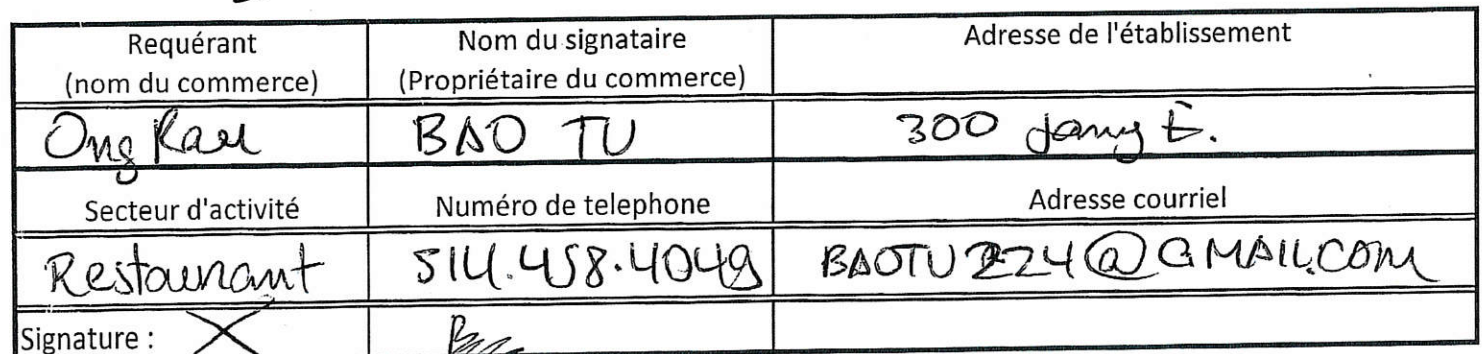 Requérant
(nom du commerce)
Nom du signataire
(Propriétaire du commerce)
Adresse de l'établissement
Ong
BAO TU
300 E.
Secteur d'activité
Numéro de telephone
Adresse courriel
Restaurant
514.458.4049
BAOTU224@GMAIL.COM
Signature :